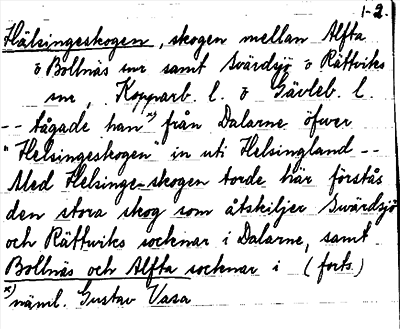 1-2.
Hälsingeskogen, skogen mellan Alfta
o Bollnäs snr samt Svärdsjö o Rättviks
snr, Kopparb. l. o Gävleb. l.
-- tågade han x) från Dalarne öfwer
"Helsingeskogen" in uti Helsingland --
Med Helsinge-skogen torde här förstås
den stora skog som åtskiljer Swärdsjö
och Rättwiks socknar i Dalarne, samt
Bollnäs och Alfta socknar i (forts.)
x) näml. Gustav Vasa